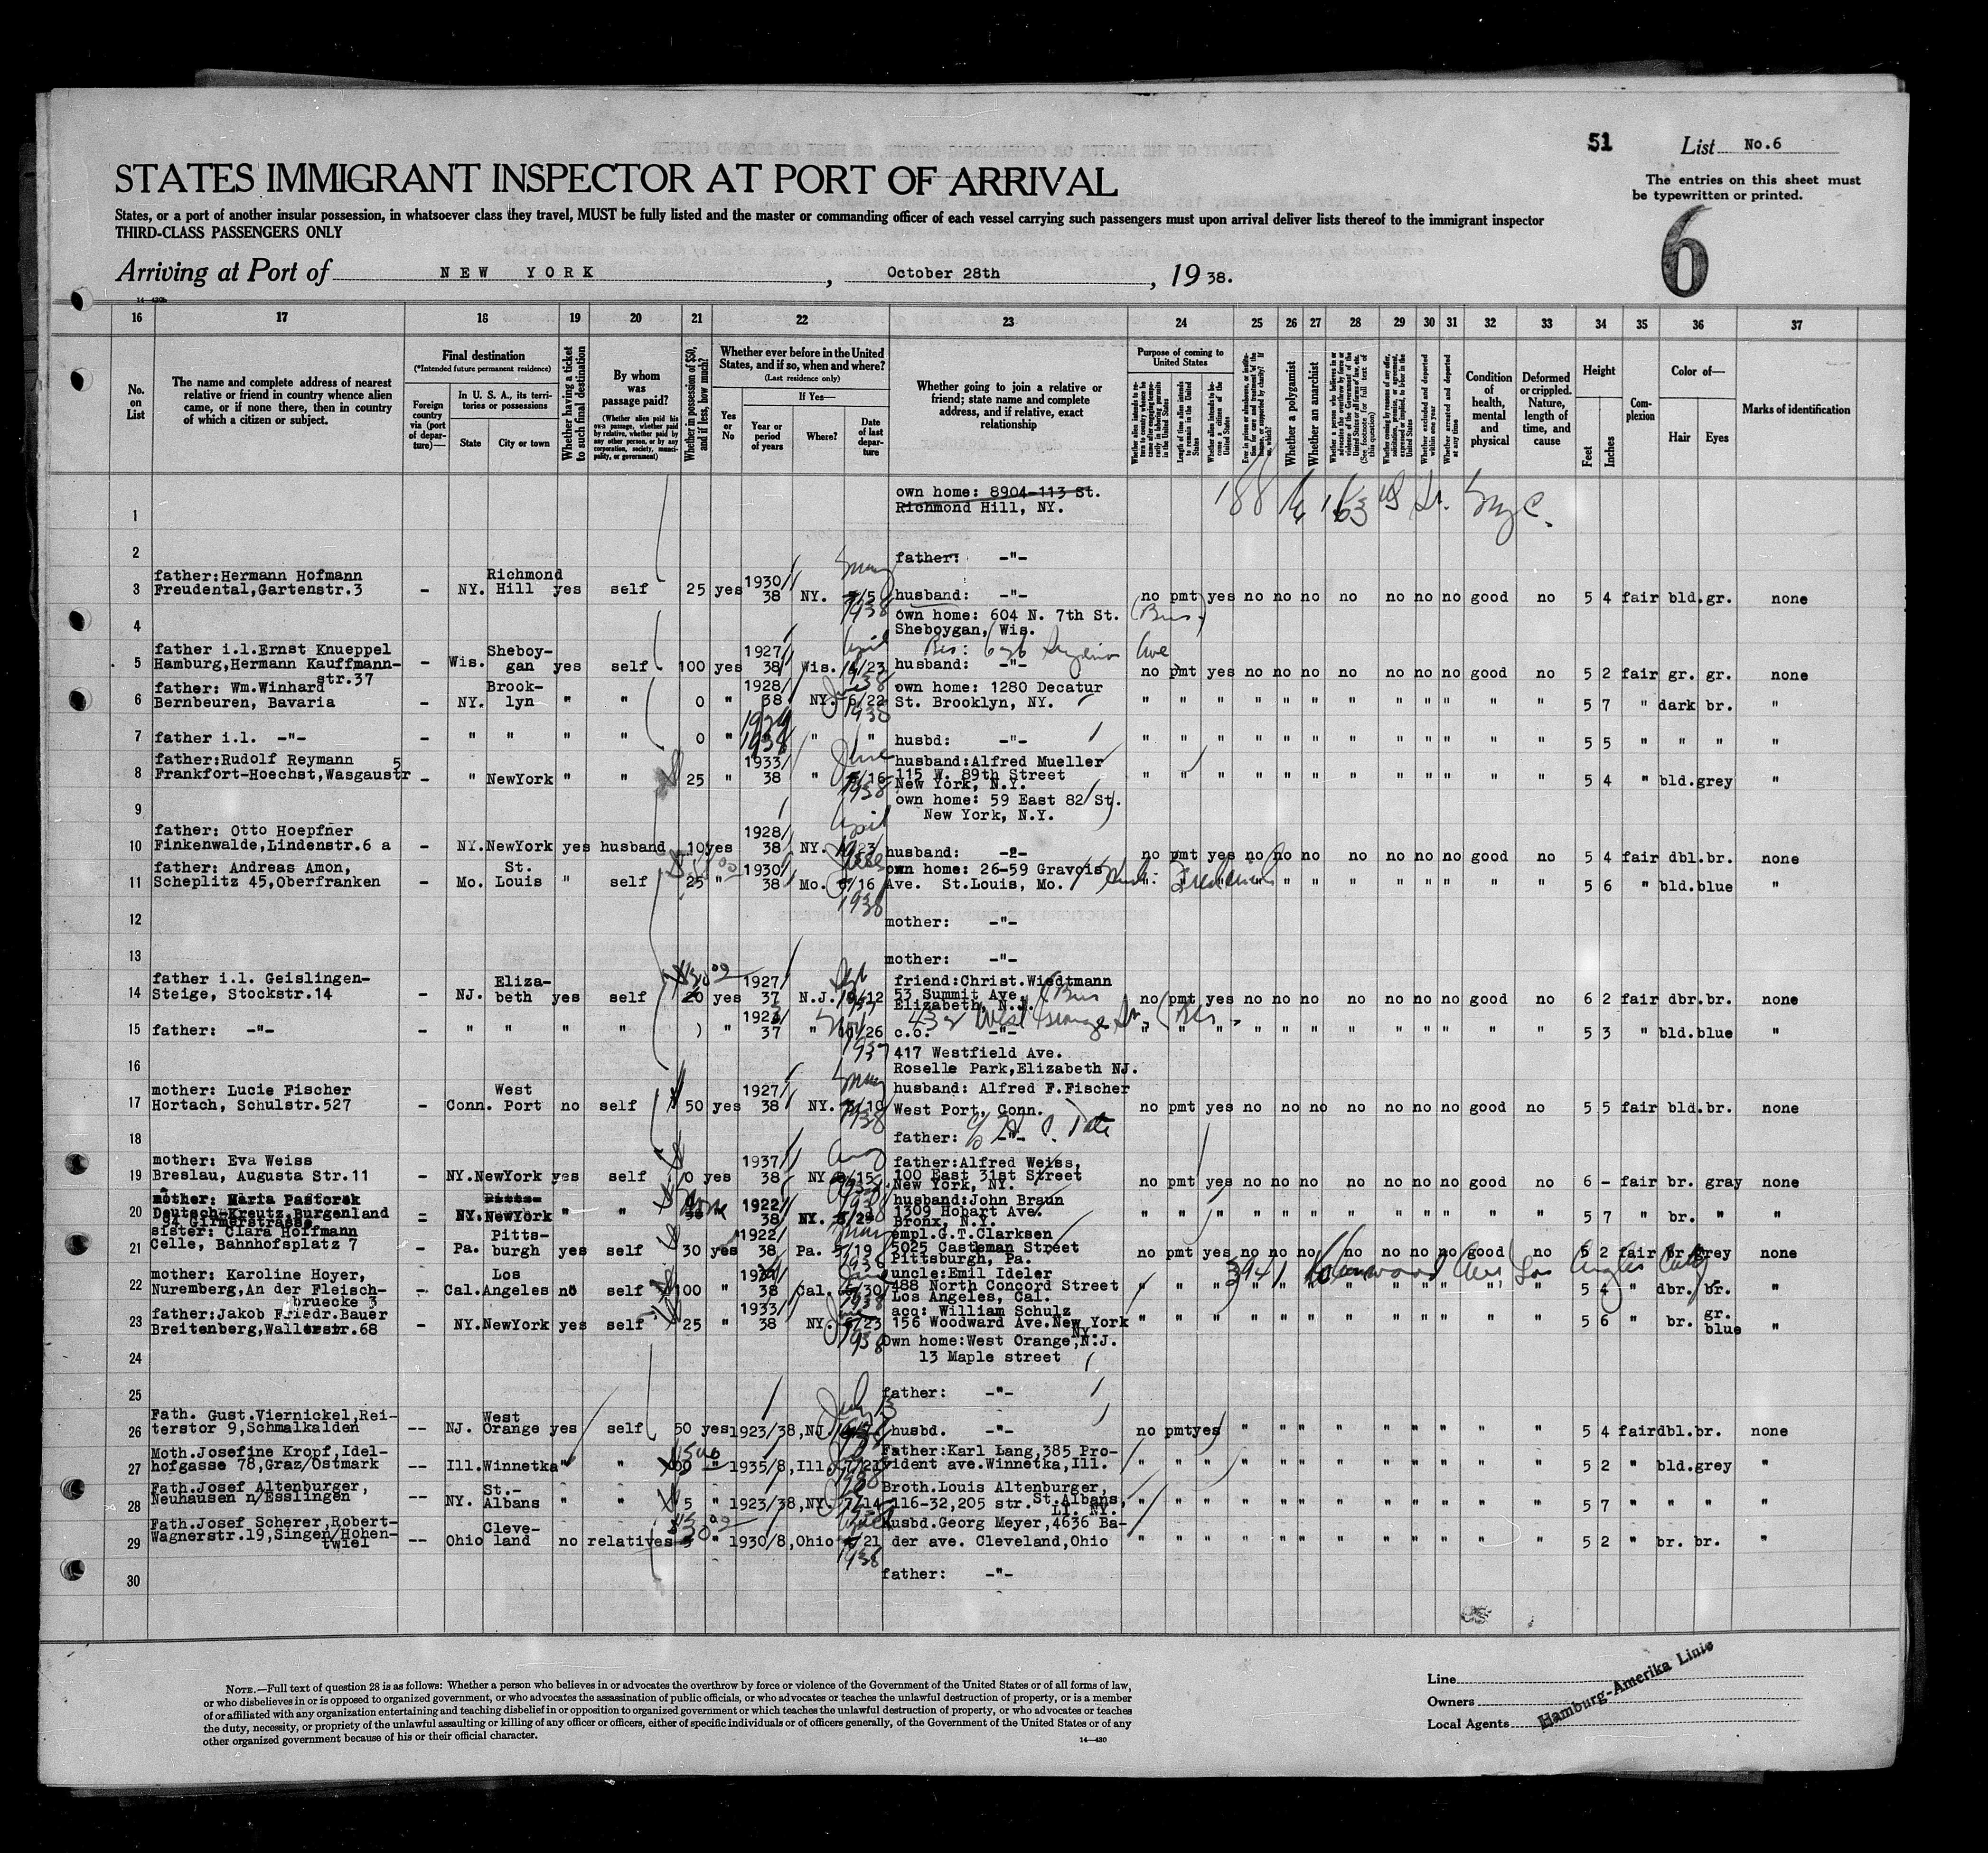 51
List No.6
The entries on this sheet must
be typewritten or printed.
6
STATES IMMIGRANT INSPECTOR AT PORT OF ARRIVAL
States, or a port of another insular possession, in whatsoever class they travel, MUST be fully listed and the master or commanding officer of each vessel carrying such passengers must upon arrival deliver lists thereof to the immigrant inspector
THIRD-CLASS PASSENGERS ONLY
Arriving at Port of NEW YORK, October 28th, 1938.
16 17 18 19 20 21 22 23 24 25 26 27 28 29 30 31 32 33 34 35 36 37
No. on List
The name and complete address of nearest relative or friend in country whence alien came, or if none there, then in country of which a citizen or subject.
Final destination
(*Intended future permanent residence)
Foreign country via (port of departure)—
In U. S. A., its territories or possessions
State
City or town
Whether having a ticket to such final destination
By whom was passage paid?
(Whether alien paid his own passage, whether paid by relative, whether paid by any other person, or by any corporation, society, municipality, or government)
Whether in possession of $50, and if less, how much?
Whether ever before in the United States, and if so, when and where?
(Last residence only)
Yes or No
If Yes—
Year or period of years
Where?
Date of last departure
Whether going to join a relative or friend; state name and complete address, and if relative, exact relationship
Purpose of coming to United States
Length of time alien intends to remain in the United States
Whether alien intends to become a citizen of the United States
Whether a polygamist
Whether an anarchist
Whether excluded and deported within one year
Whether arrested and deported at any time
Condition of health, mental and physical
Deformed or crippled. Nature, length of time, and cause
Height
Feet
Inches
Complexion
Color of—
Hair
Eyes
Marks of identification
1 own home: 8904-113 St.
Richmond Hill, NY. 188 163
2 father: -"-
3 father:Hermann Hofmann
Freudental,Gartenstr.3 - NY. Richmond Hill yes self 25 yes 1930/38 NY. 1938 husband: -"- no pmt yes no no no no no no no good no 5 4 fair bld. gr. none
4 own home: 604 N. 7th St.
Sheboygan, Wis.
5 father i.l.Ernst Knueppel
Hamburg,Hermann Kauffmann-
str.37 - Wis. Sheboy-gan yes self 100 yes 1927/38 Wis. April 4/23 38 husband: -"- no pmt yes no no no no no no no good no 5 2 fair gr. gr. none
6 father: Wm.Winhard
Bernbeuren, Bavaria - NY. Brook-lyn " " 0 " 1928/38 NY. June 6/22 1938 own home: 1280 Decatur
St. Brooklyn, NY. " " " " " " " " " " " " 5 7 " dark br. "
7 father i.l. -"- - " " " " 0 " 1938 " " husbd: -"- " " " " " " " " " " " " 5 5 " " " "
8 father:Rudolf Reymann
Frankfort-Hoechst,Wasgaustr 5 - " NewYork " " 25 " 1933/38 " June 6/16 1938 husband:Alfred Mueller
115 W. 89th Street
New York, N.Y. " " " " " " " " " " " " 5 4 " bld. grey "
9 own home: 59 East 82 St.
New York, N.Y.
10 father: Otto Hoepfner
Finkenwalde,Lindenstr.6 a - NY. NewYork yes husband 10 yes 1928/38 NY. April 4/23 husband: -"- no pmt yes no no no no no no no good no 5 4 fair dbl. br. none
11 father: Andreas Amon,
Scheplitz 45,Oberfranken - Mo. St. Louis " self 25 " 1930/38 Mo. 6/16 1938 own home: 26-59 Gravois
Ave. St.Louis, Mo. " " " " " " " " " " 5 6 " bld. blue "
12 mother: -"-
13 mother: -"-
14 father i.l. Geislingen-
Steige, Stockstr.14 - NJ. Eliza-beth yes self 20 yes 1927/37 N.J. friend:Christ.Wiedtmann
53 Summit Ave.
Elizabeth, N.J. no pmt yes no no no no no no no good no 6 2 fair dbr. br. none
15 father: -"- - " " " " " 1923/37 " 1937 c.o. -"- " " " " " " " " " " " " 5 3 " bld. blue "
16 417 Westfield Ave.
Roselle Park,Elizabeth NJ.
17 mother: Lucie Fischer
Hortach, Schulstr.527 - Conn. West Port no self 50 yes 1927/38 NY. 1938 husband: Alfred F.Fischer
West Port, Conn. no pmt yes no no no no no no no good no 5 5 fair bld. br. none
18 father: -"-
19 mother: Eva Weiss
Breslau, Augusta Str.11 - NY. NewYork yes self 0 yes 1937/38 NY. father:Alfred Weiss,
100 East 31st Street
New York, NY. no pmt yes no no no no no no no good no 6 - fair br. gray none
20 mother: Maria Pastorek
Deutsch-Kreutz,Burgenland
94 Girmerstrasse - NY. NewYork " " None 1922/38 NY. 1938 husband:John Braun
1309 Hobart Ave.
Bronx, N.Y. " " " " " " " " " " " " 5 7 " br. " "
21 sister: Clara Hoffmann
Celle, Bahnhofsplatz 7 - Pa. Pitts-burgh yes self 30 yes 1922/38 Pa. May 5/19 1938 empl.G.T.Clarksen
5025 Casteman Street
Pittsburgh, Pa. no pmt yes no no no no no no no good no 5 2 fair br. grey none
22 mother: Karoline Hoyer,
Nuremberg,An der Fleisch-
bruecke 3 - Cal. Los Angeles no self 100 " 38 Cal. June 6/30 1938 uncle:Emil Ideler
488 North Concord Street
Los Angeles, Cal. 3941 Kenwood Ave Los Angeles Calif 5 4 " dbr. br. "
23 father:Jakob Friedr.Bauer
Breitenberg, - NY. NewYork yes self 25 " 1933/38 NY. 6/23 1938 acq: William Schulz
156 Woodward Ave.New York
NY. " " " " " " " " " " " " 5 6 " br. gr. blue "
24 Own home:West Orange,N.J.
13 Maple street
25 father: -"-
26 Fath. Gust.Viernickel,Rei-
terstor 9,Schmalkalden -- NJ. West Orange yes self 50 yes 1923/38,NJ. July 13 husbd. -"- no pmt yes " " " " " " " " " 5 4 fair dbl. br. none
27 Moth.Josefine Kropf,Idel-
hofgasse 78,Graz/Ostmark -- Ill. Winnetka " " " 1935/8,Ill. 7/21 Father:Karl Lang,385 Pro-
vident ave.Winnetka,Ill. " " " " " " " " " " " " 5 2 " bld. grey "
28 Fath.Josef Altenburger,
Neuhausen n/Esslingen -- NY. St.-Albans " " 5 " 1923/38,NY. 7/14 Broth.Louis Altenburger,
116-32,205 str. St.Albans,
LI. NY. " " " " " " " " " " " " 5 7 " " " "
29 Fath.Josef Scherer,Robert-
Wagnerstr.19,Singen/Hohen-
twiel -- Ohio Cleve-land no relatives " 1930/8,Ohio 1938 Husbd.Georg Meyer,4636 Ba-
der ave. Cleveland,Ohio " " " " " " " " " " " " 5 2 " br. br. "
30 father: -"-
NOTE.—Full text of question 28 is as follows: Whether a person who believes in or advocates the overthrow by force or violence of the Government of the United States or of all forms of law,
or who disbelieves in or is opposed to organized government, or who advocates the assassination of public officials, or who advocates or teaches the unlawful destruction of property, or is a member
of or affiliated with any organization entertaining and teaching disbelief in or opposition to organized government or which teaches the unlawful destruction of property, or who advocates or teaches
the duty, necessity, or propriety of the unlawful assaulting or killing of any officer or officers, either of specific individuals or of officers generally, of the Government of the United States or of any
other organized government because of his or their official character.
14—420
Line
Owners
Local Agents
Hamburg-Amerika Linie